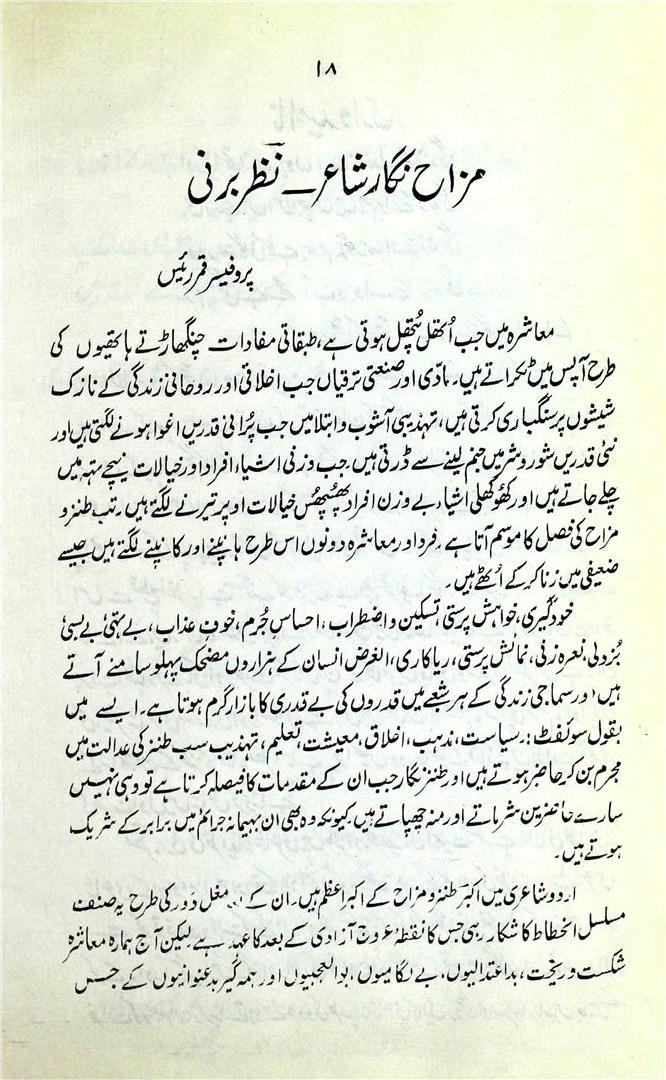 ۱۸
مزاح نگار شاعر ۔ نظر برنی
پروفیسر قمر رئیس
معاشرہ میں جب اُتھل پتھل ہوتی ہے، طبقاتی مفادات چنگھاڑتے ہاتھیوں کی
طرح آپس میں ٹکراتے ہیں۔ مادّی اور صنعتی ترقیاں جب اخلاقی اور روحانی زندگی کے نازک
شیشوں پر سنگباری کرتی ہیں، تہذیبی آشوب و ابتلا میں جب پُرانی قدریں اغوا ہونے لگتی ہیں اور
نئی قدریں شور و شر میں جنم لینے سے ڈرتی ہیں۔ جب وزنی اشیاء، افراد اور خیالات نیچے تہہ میں
چلے جاتے ہیں اور کھوکھلی اشیاء بے وزن افراد پھُسپھُس خیالات اوپر تیرنے لگتے ہیں۔ تب طنز و
مزاح کی فصل کا موسم آتا ہے۔ فرد اور معاشرہ دونوں اس طرح ہانپنے اور کانپنے لگتے ہیں جیسے
ضعیفی میں زنا کر کے اُٹھے ہیں۔
خودگیری، خواہش پرستی، تسکین و اضطراب، احساسِ جُرم، خوفِ عذاب، بے ہمتی بے بسی
بُزدلی، نعرہ زنی، نمائش پرستی، ریاکاری، الغرض انسان کے ہزاروں مضحک پہلو سامنے آتے
ہیں اور سماجی زندگی کے ہر شعبے میں قدروں کی بے قدری کا بازار گرم ہوتا ہے۔ ایسے میں
بقول سوئفٹ:۔ سیاست، مذہب، اخلاق، معیشت، تعلیم، تہذیب سب طنز کی عدالت میں
مجرم بن کر حاضر ہوتے ہیں اور طنز نگار جب ان کے مقدمات کا فیصلہ کرتا ہے تو وہی نہیں
سارے حاضرین شرماتے اور منہ چھپاتے ہیں۔ کیونکہ وہ بھی ان بہیمانہ جرائم میں برابر کے شریک
ہوتے ہیں۔
اردو شاعری میں اکبر طنز و مزاح کے اکبر اعظم ہیں۔ ان کے بعد مغل دور کی طرح یہ صنف
مسلسل انحطاط کا شکار رہی جس کا نقطۂ عروج آزادی کے بعد کا عہد ہے لیکن آج ہمارہ معاشرہ
شکست و ریخت، بداعتدالیوں، بے لگامیوں، بوالعجبیوں اور ہمہ گیر بدعنوانیوں کے جس